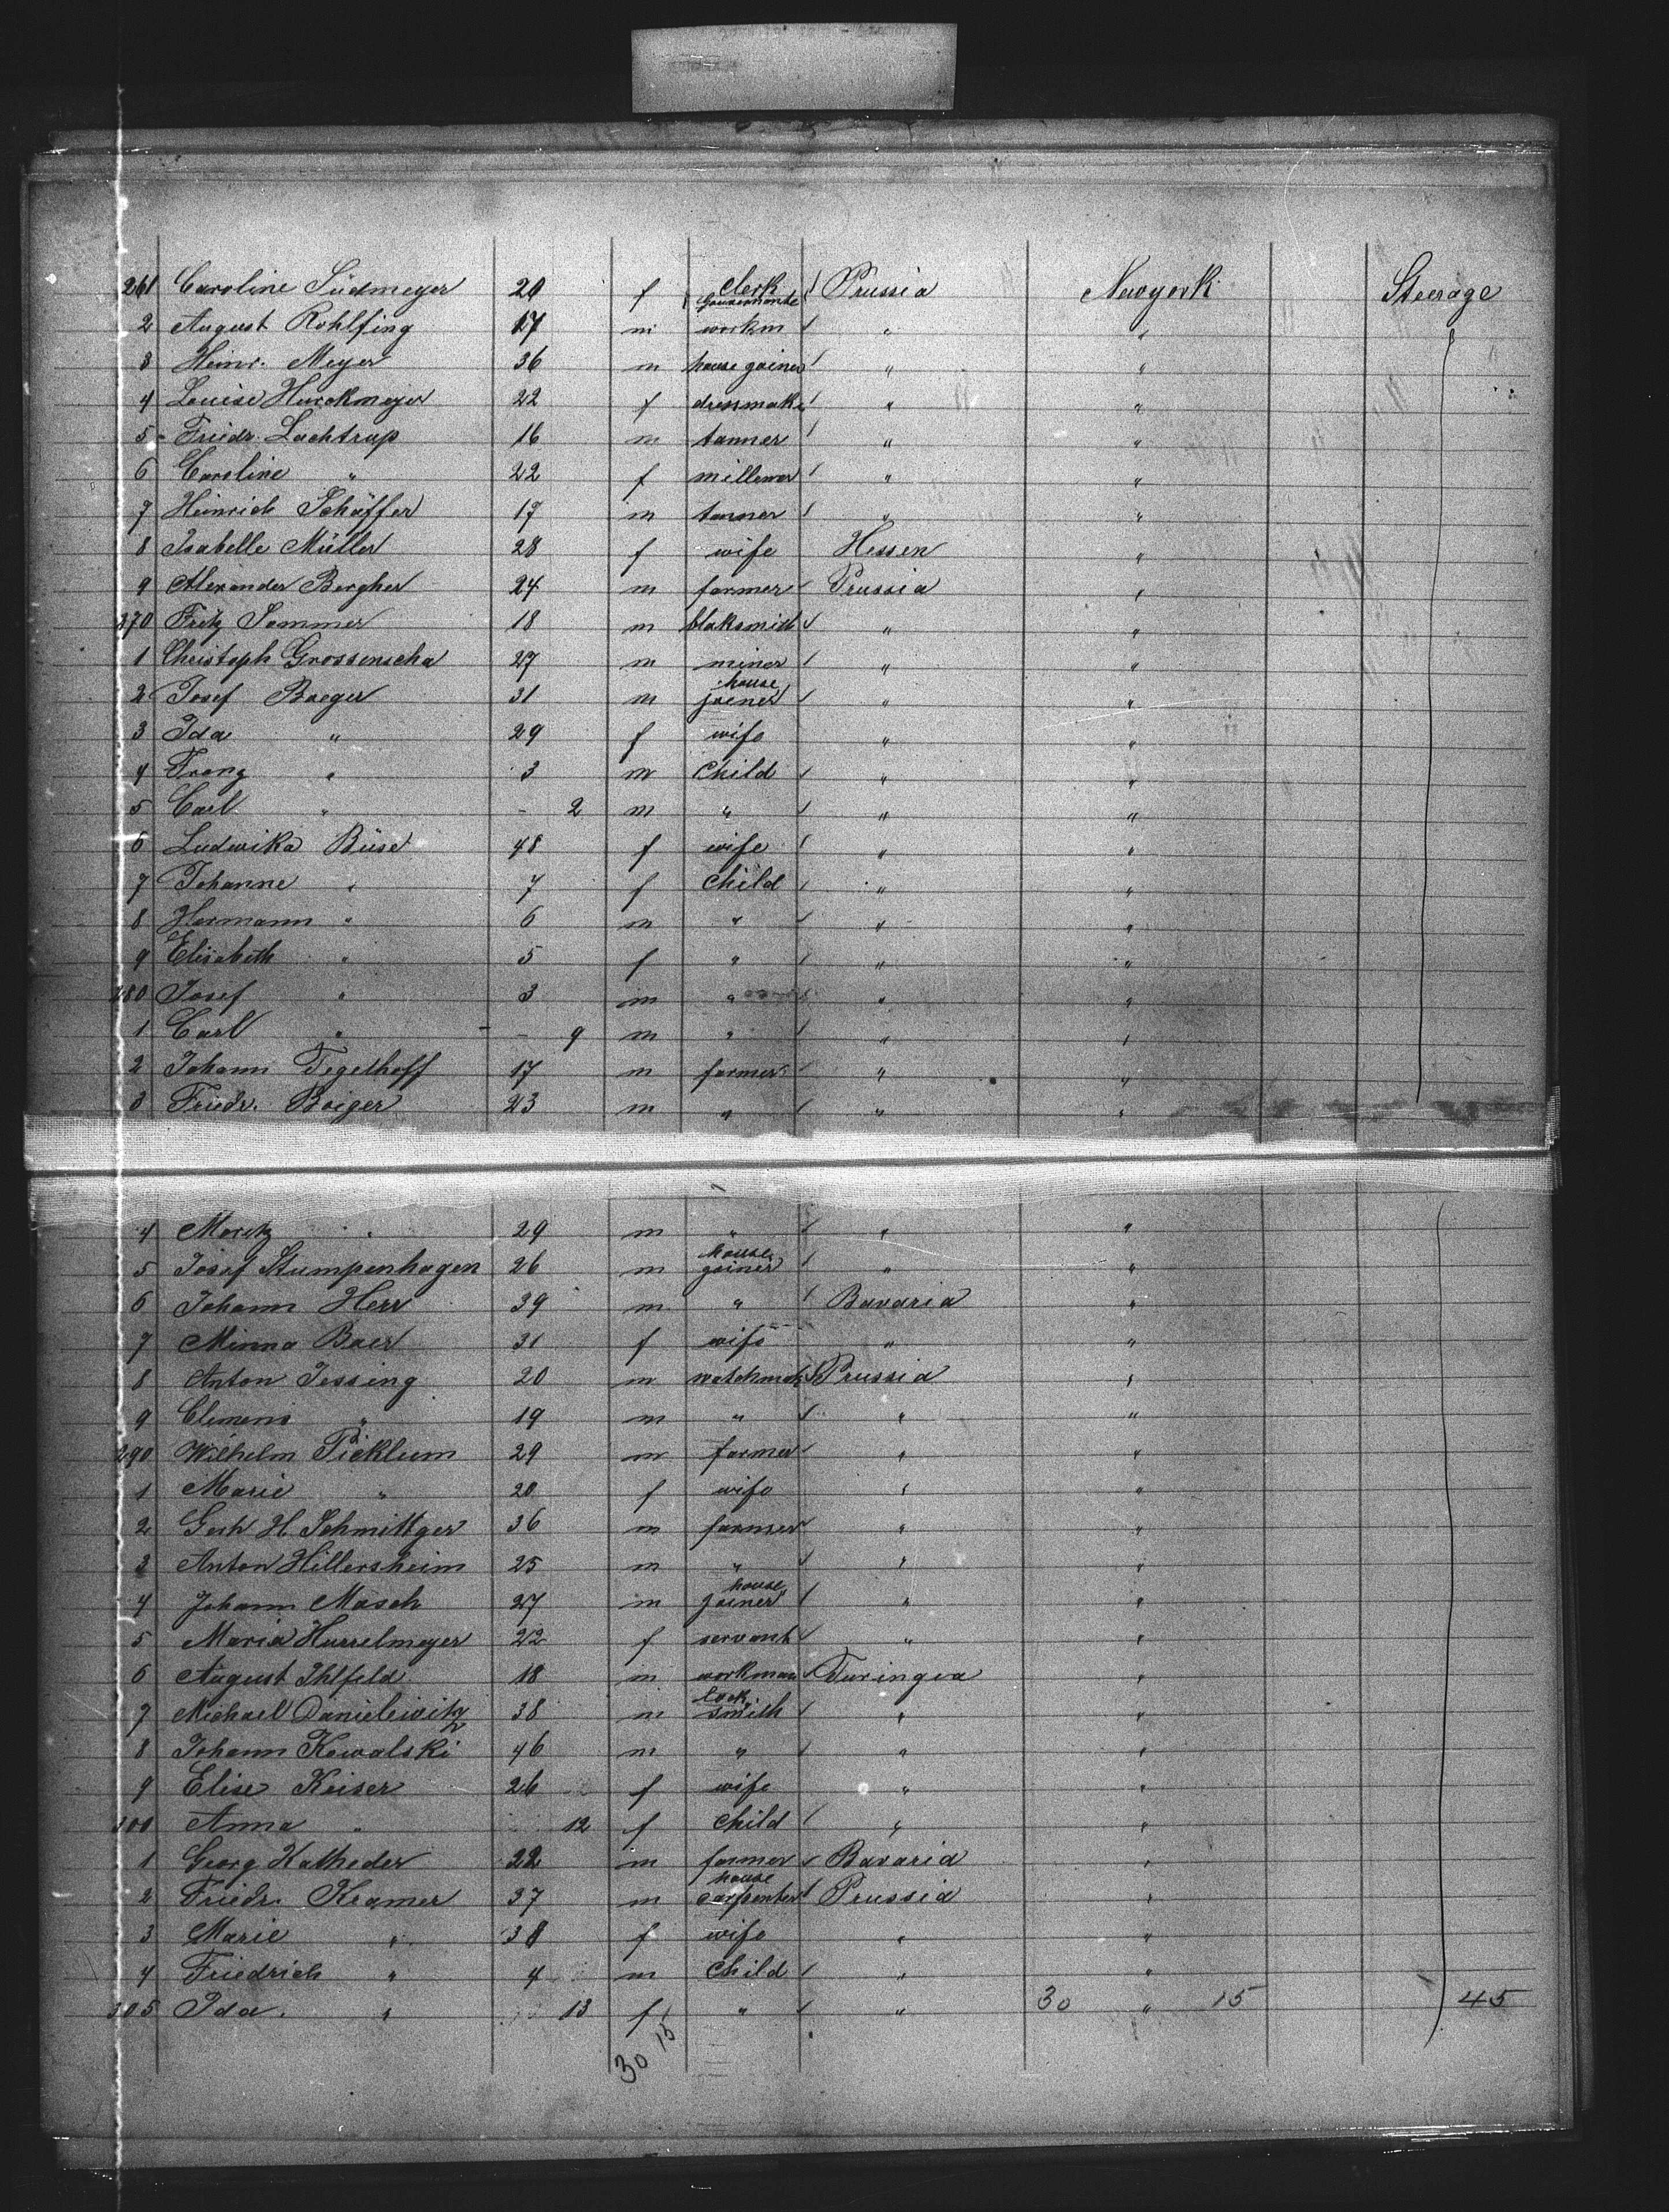 261 Caroline Südmeyer 20 f clerk Gouvernante Prussia Newyork Steerage
2 August Rohlfing 17 m workm " "
3 Heinr. Meyer 36 m house goiner " "
4 Louise Hurckmeyer 22 f dressmake " "
5 Friedr. Lachtrup 16 m tanner " "
6 Caroline " 22 f millener " "
7 Heinrich Schäffer 17 m tanner " "
8 Isabelle Müller 28 f wife Hessen "
9 Alexander Bergher 24 m farmer Prussia "
270 Fritz Sammer 18 m blaksmith " "
1 Christoph Grossenscha 27 m miner " "
2 Josef Baeger 31 m house joiner " "
3 Ida " 29 f wife " "
4 Franz " 3 m Child " "
5 Carl " - 2 m " " "
6 Ludwika Büse 48 f wife " "
7 Johanne " 7 f Child " "
8 Hermann " 6 m " " "
9 Elisabeth " 5 f " " "
280 Josef " 3 m " " "
1 Carl " - 9 m " " "
2 Johann Tegelhoff 17 m farmer " "
3 Friedr. Boiger 23 m " " "
4 Moritz " 29 m " " "
5 Josef Stumpenhagen 26 m house goiner " "
6 Johann Herr 39 m " Bavaria "
7 Minna Baer 31 f wife " "
8 Anton Jessing 20 m watchmak Prussia "
9 Clemens " 19 m " " "
290 Wilhelm Picklum 29 m farmer " "
1 Marie " 20 f wife " "
2 Gerh H. Schmittger 36 m farmer " "
3 Anton Hillersheim 25 m " " "
4 Johann Masch 27 m house joiner " "
5 Maria Hurrelmeyer 22 f servant " "
6 August Ihlfeld 18 m workman Turingea "
7 Michael Danielewitz 38 m lock smith " "
8 Johann Kowalski 46 m " " "
9 Elise Keiser 26 f wife " "
300 Anna " 12 f Child " "
1 Georg Katheder 22 m farmer Bavaria "
2 Friedr. Kramer 37 m house carpenter Prussia "
3 Marie " 38 f wife " "
4 Friedrich " 4 m Child " "
305 Ida " 13 f " " 30 " 15 45
30 15